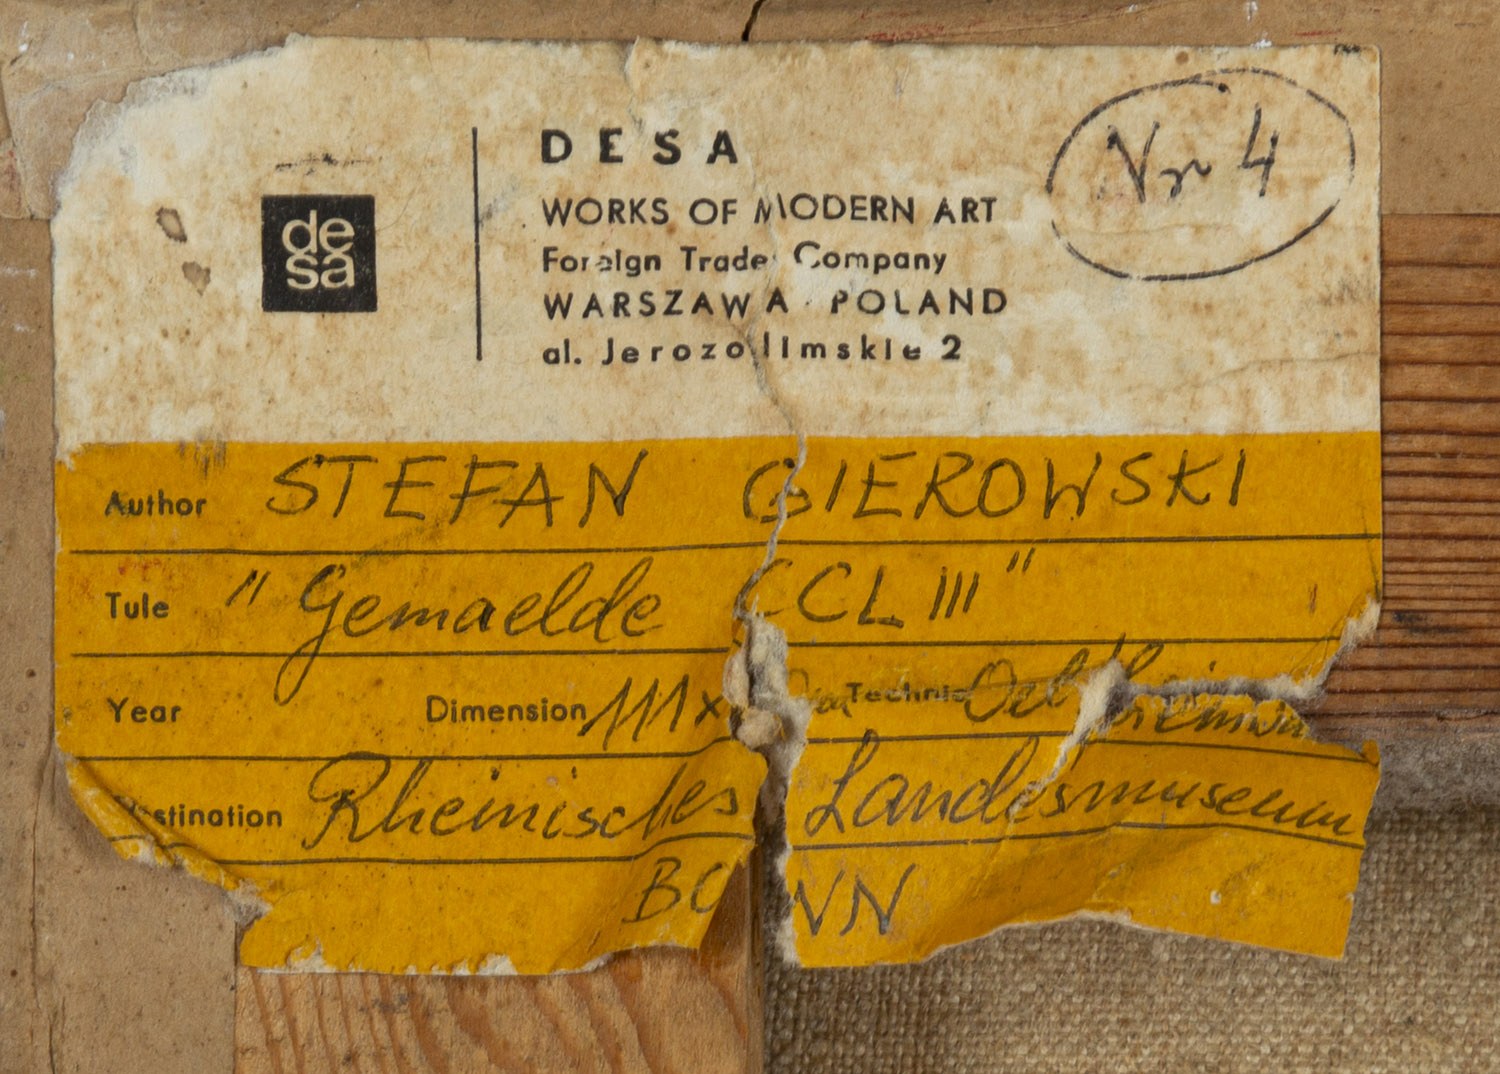 Nr 4
de
sa
DESA
WORKS OF MODERN ART
Foreign Trade Company
WARSZAWA · POLAND
al. Jerozolimskie 2
Author STEFAN GIEROWSKI
Title "Gemaelde CCLIII"
Year Dimension 111x Technic Oel
Destination Rheinisches Landesmuseum
BONN